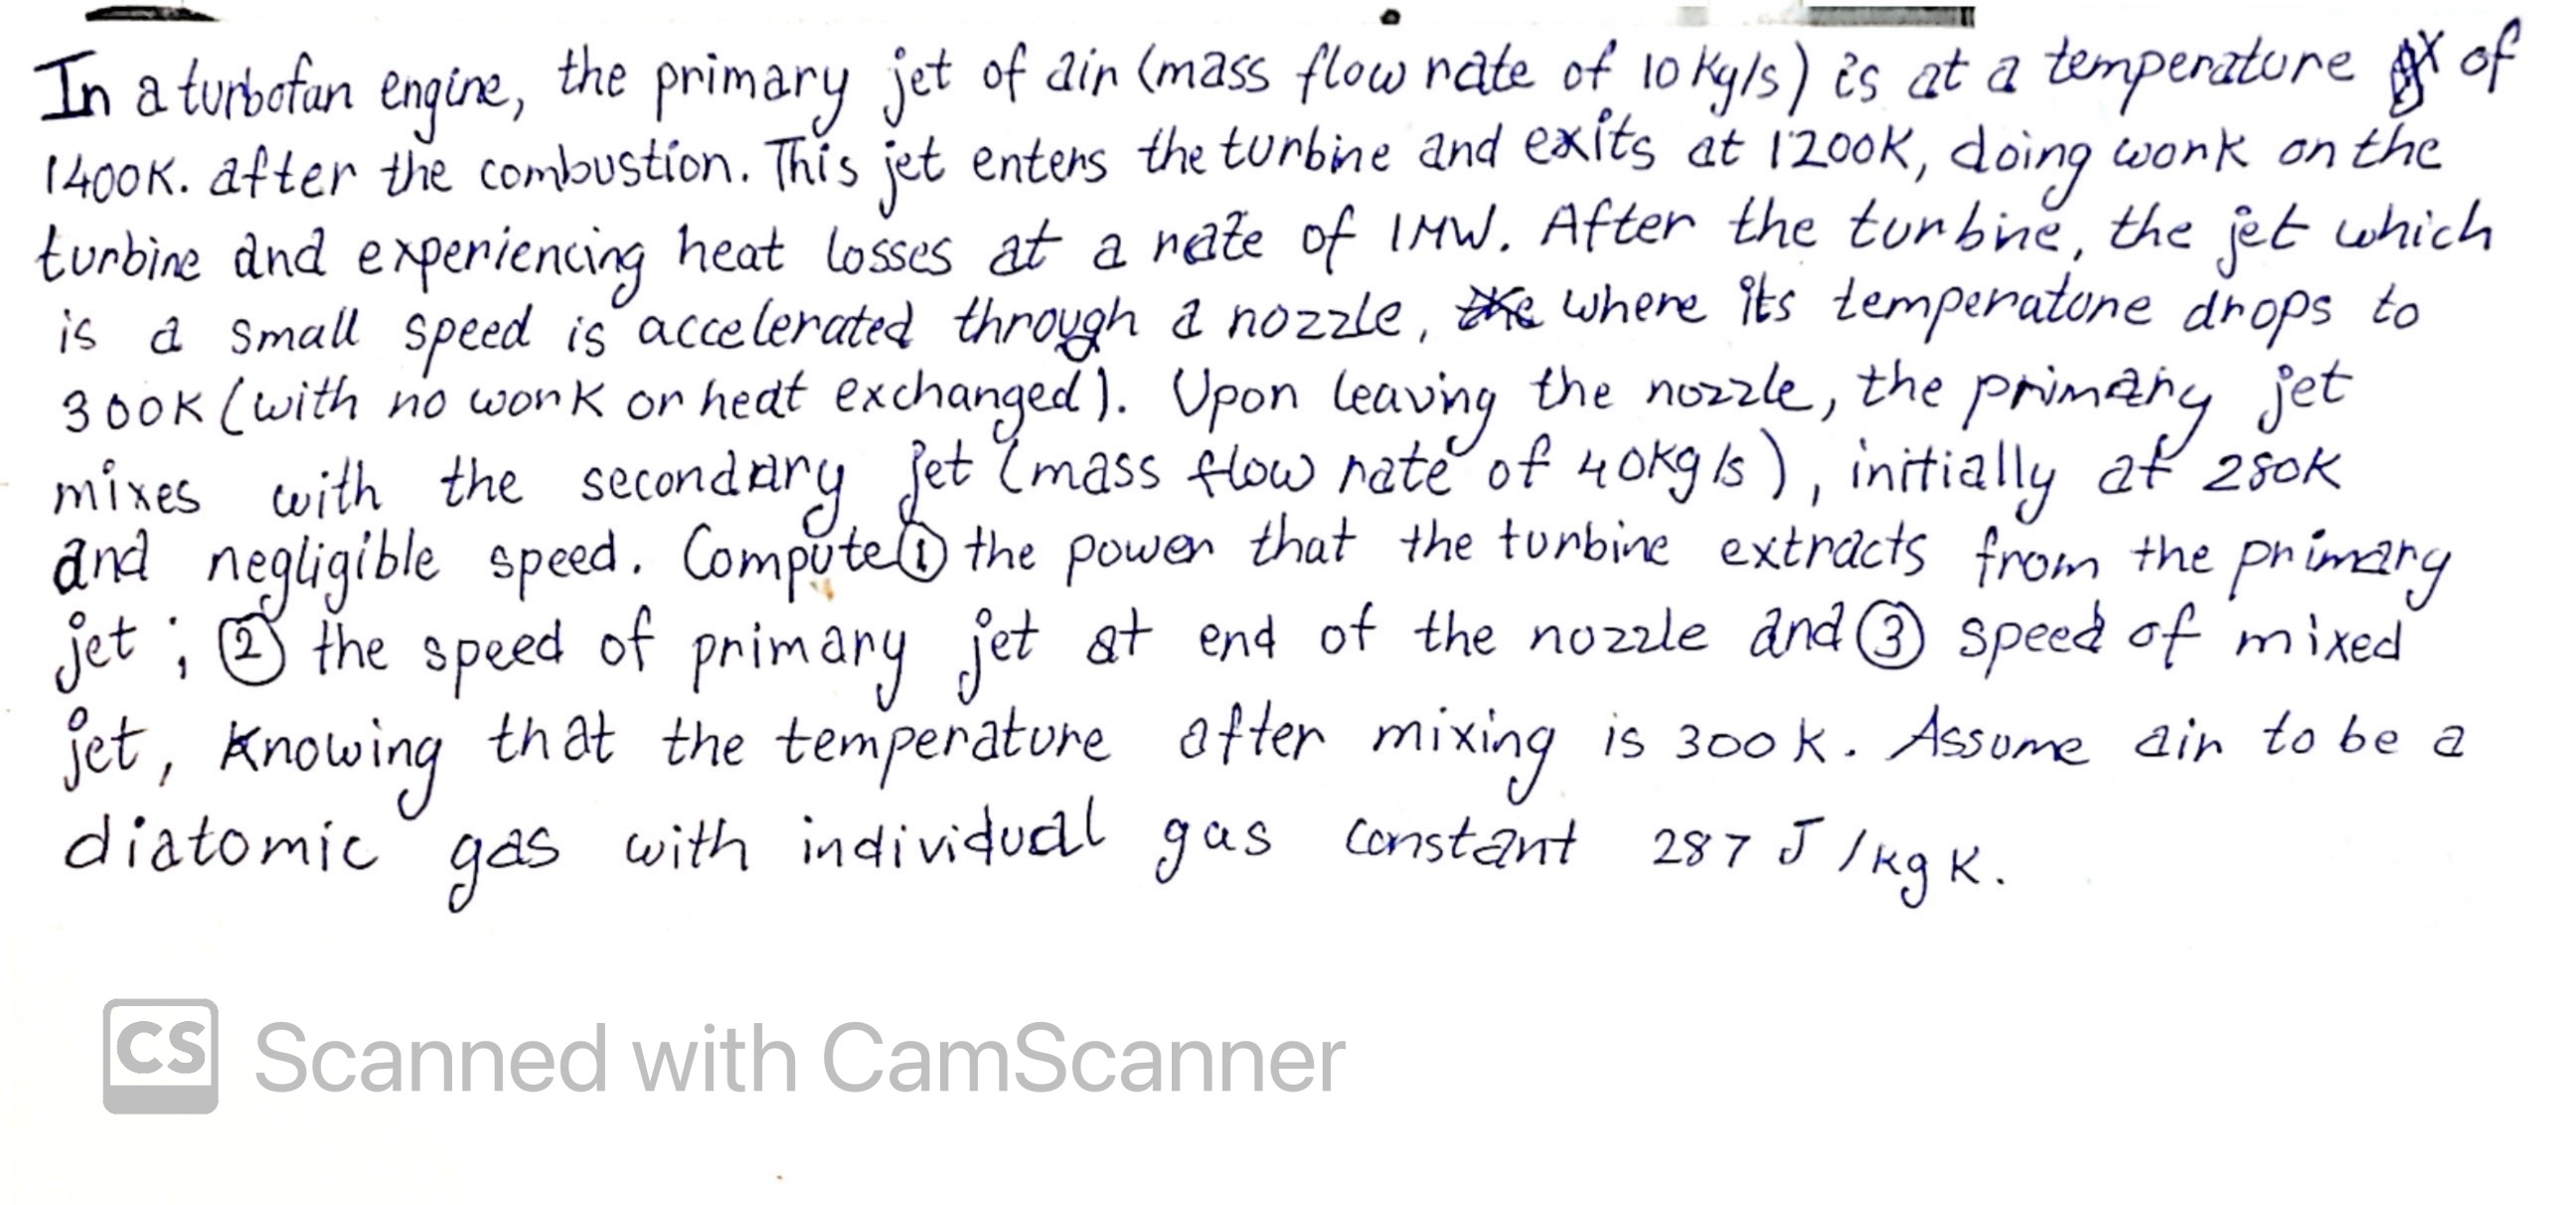 In a turbofan engine, the primary jet of air (mass flow rate of 10 Kg/s) is at a temperature of
1400K. after the combustion. This jet enters the turbine and exits at 1200K, doing work on the
turbine and experiencing heat losses at a rate of 1MW. After the turbine, the jet which
is a small speed is accelerated through a nozzle, where its temperature drops to
300K (with no work or heat exchanged). Upon leaving the nozzle, the primary jet
mixes with the secondary jet (mass flow rate of 40kg/s), initially at 280K
and negligible speed. Compute ① the power that the turbine extracts from the primary
jet; ② the speed of primary jet at end of the nozzle and ③ speed of mixed
jet, Knowing that the temperature after mixing is 300K. Assume air to be a
diatomic gas with individual gas constant 287 J/kg K.
CS Scanned with CamScanner